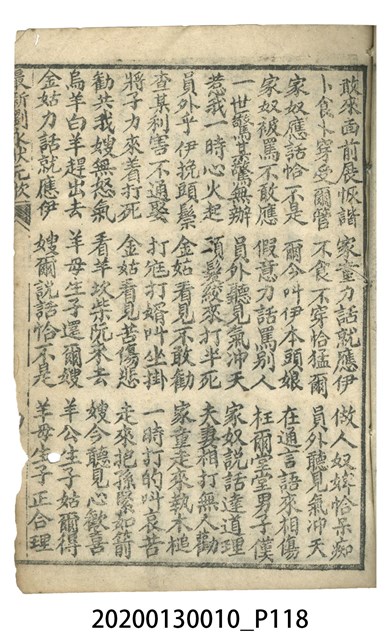 敢來面前展恢諧 家童力話就應伊 做人奴婢恰呆痴
卜食卜穿受爾管 不食不穿恰猛爾 員外聽見氣冲天
家奴應話恰不是 爾今叫伊本頭娘 在通言語來相傷
家奴被罵不敢應 假意力話罵別人 枉爾堂堂男子僕
一世驚某驚無辦 員外聽見氣冲天 家奴說話達道理
惹我一時心火起 頭鬃絞來打半死 夫妻相打無人勸
員外乎伊挽頭鬃 金姑看見不敢勸 家童走來執木槌
查某利害不通娶 打尪打婿叫坐掛 一時打的叫哀苦
將子力來着打死 金姑看見苦傷悲 走來抱孫緊如箭
勸共我嫂無怒氣 看羊坎柴阮來去 嫂今聽見心歡喜
烏羊白羊趕出去 羊母生子還爾嫂 羊公生子姑爾得
金姑力話就應伊 嫂爾說話恰不是 羊母生子正合理
最新劉
20200130010_P118